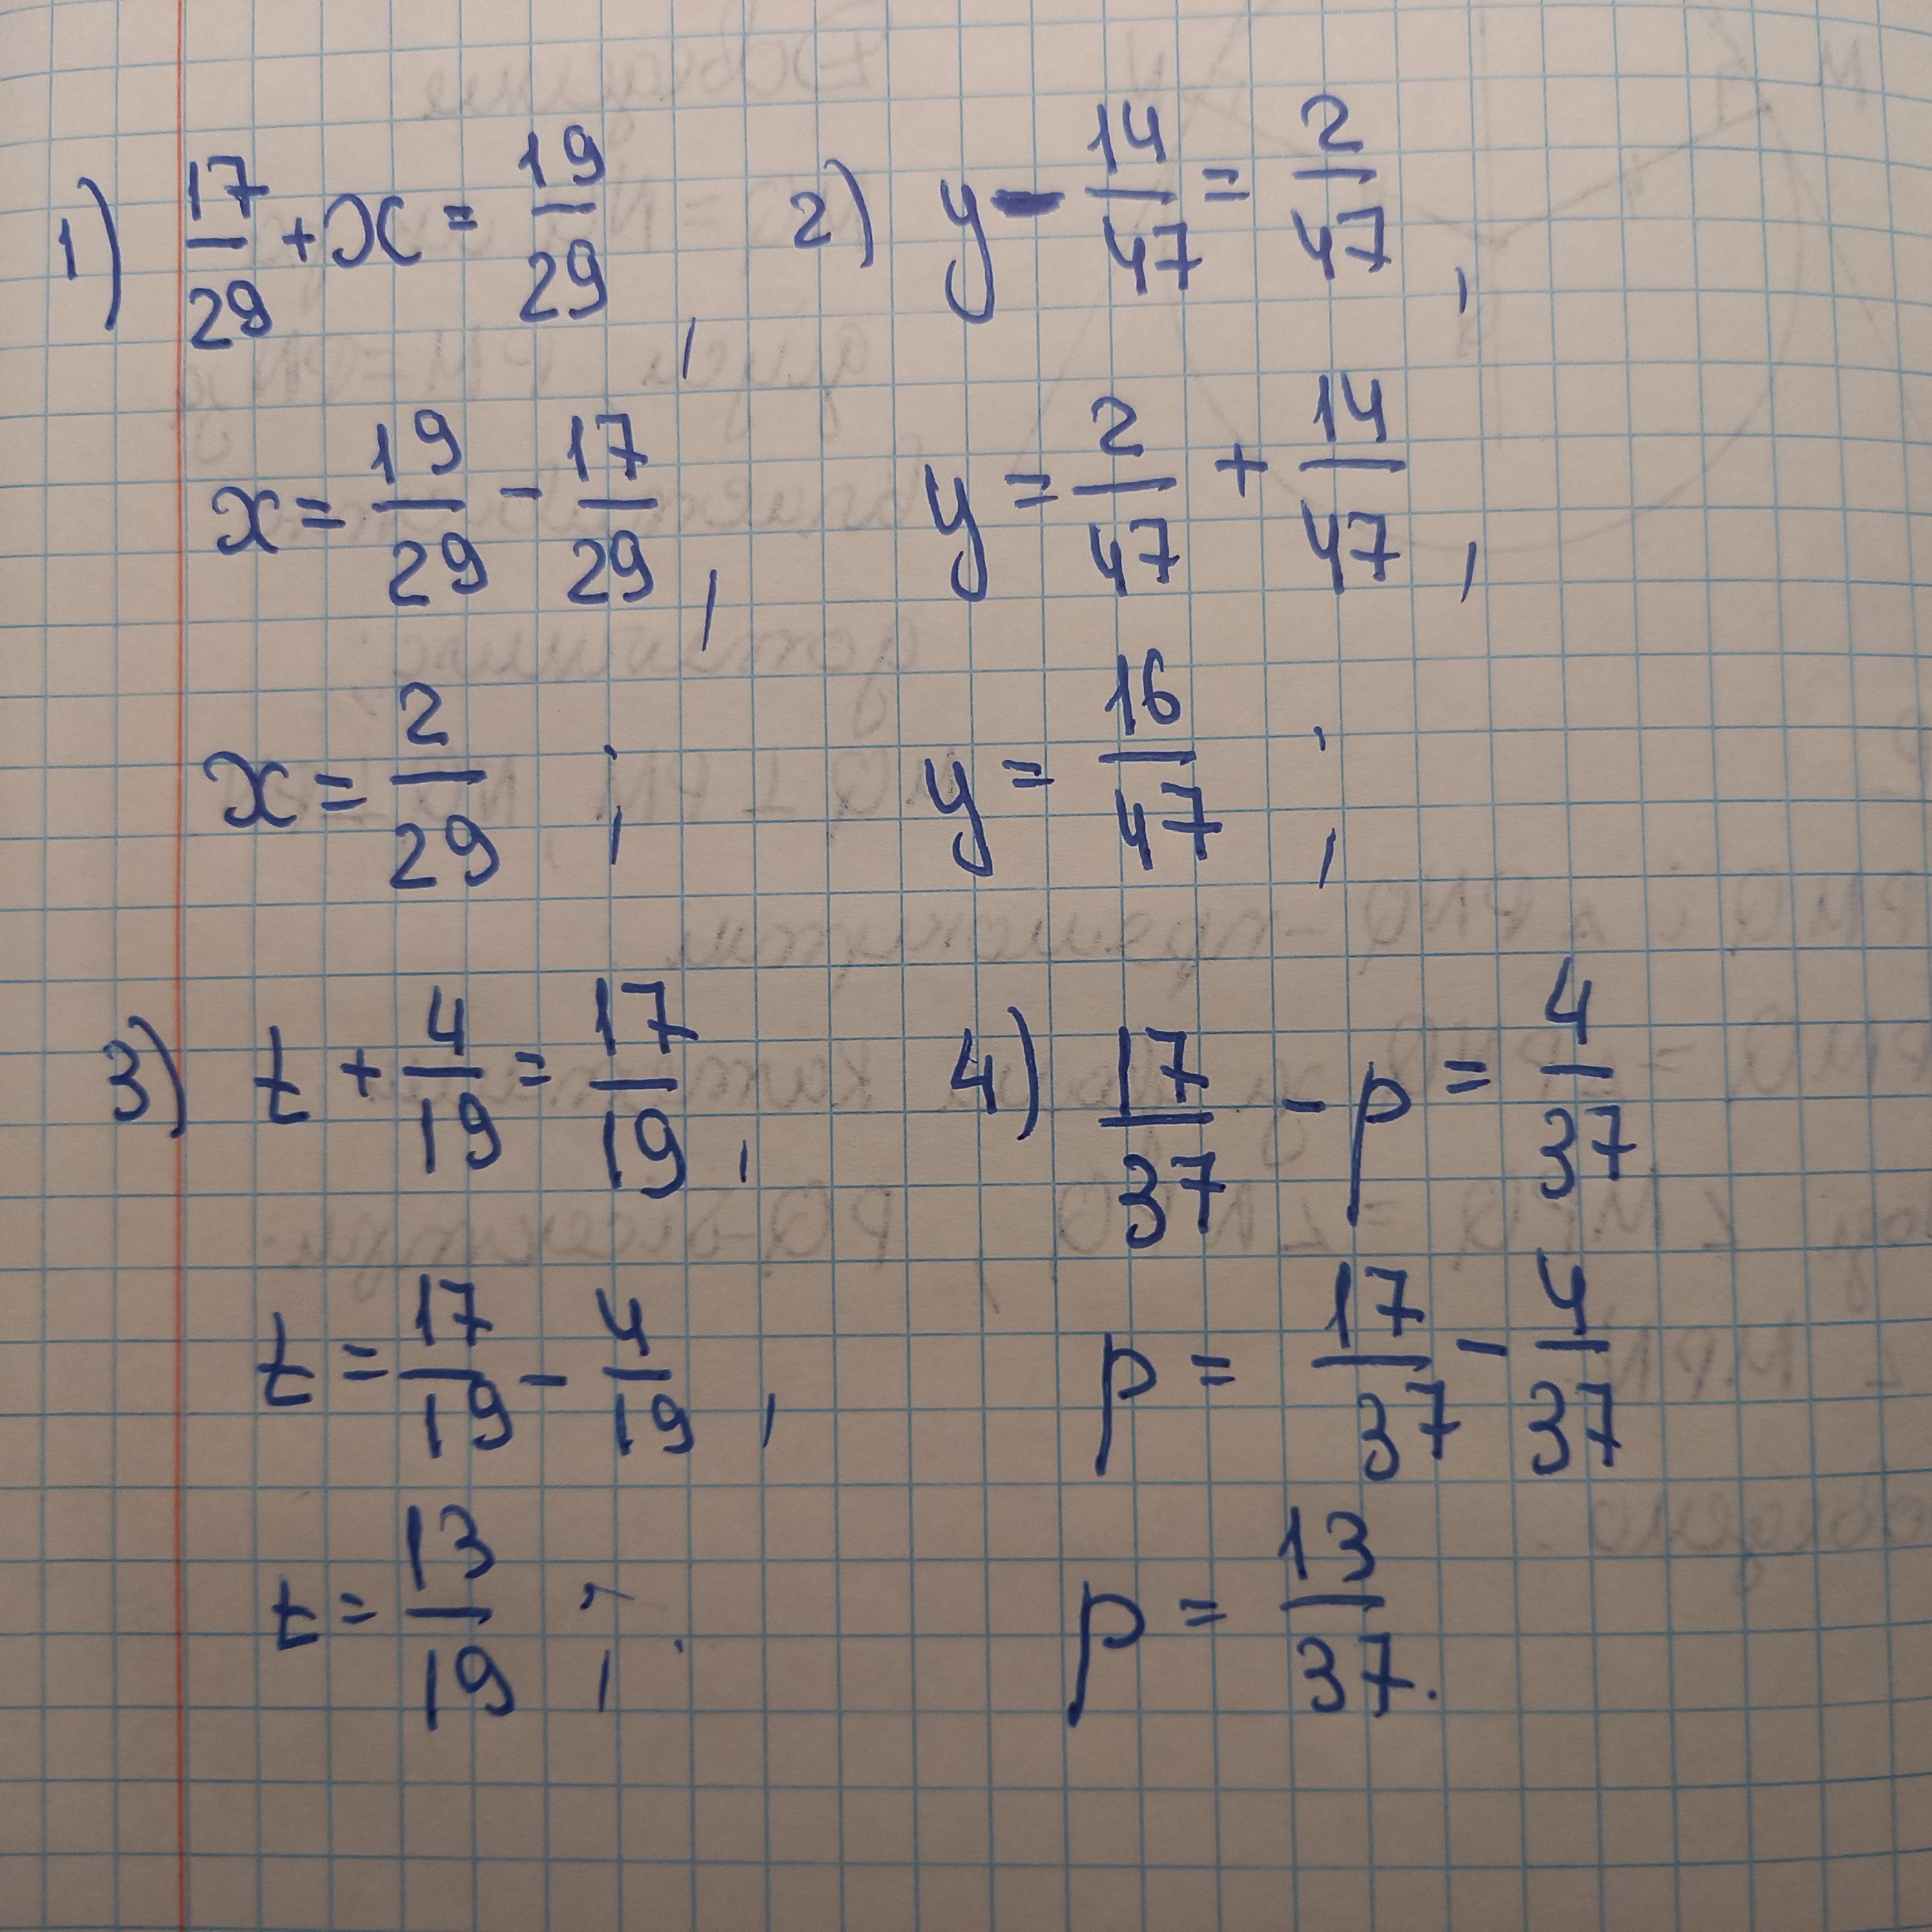 1) 17/29 + x = 19/29,
x = 19/29 - 17/29,
x = 2/29;
2) y - 14/47 = 2/47,
y = 2/47 + 14/47,
y = 16/47;
3) t + 4/19 = 17/19,
t = 17/19 - 4/19,
t = 13/19;
4) 17/37 - p = 4/37
p = 17/37 - 4/37
p = 13/37.